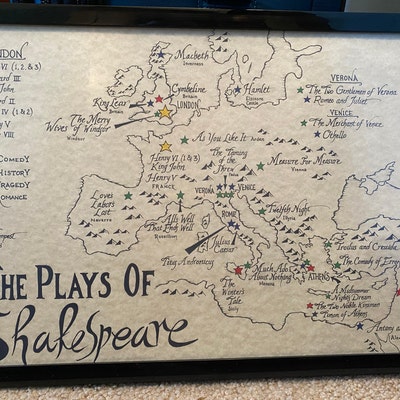 NDON
VI (1, 2 & 3)
ard III
John
ard II
IV (1 & 2)
V
VIII
COMEDY
HISTORY
TRAGEDY
ROMANCE
Macbeth
Inverness
Cymbeline
Britain
King Lear
Britain
LONDON
The Merry
Wives of Windsor
Windsor
Hamlet
Elsinore
Castle
VERONA
The Two Gentlemen of Verona
Romeo and Juliet
VENICE
The Merchant of Venice
Othello
As You Like It
Arden
Henry VI (1 & 3)
King John
Henry V
FRANCE
The Taming
of the
Shrew
Measure For Measure
Vienna
Love's
Labor's
Lost
NAVARRE
VERONA
VENICE
All's Well
That Ends Well
Roussillon
Twelfth Night
Illyria
ROME
Julius
Caesar
Titus Andronicus
Troilus and Cressida
The Comedy of Errors
Much Ado
About Nothing
Messina
The
Winter's
Tale
Sicily
ATHENS
A Midsummer
Night's Dream
The Two Noble Kinsmen
Timon of Athens
Antony a
THE PLAYS OF
Shakespeare